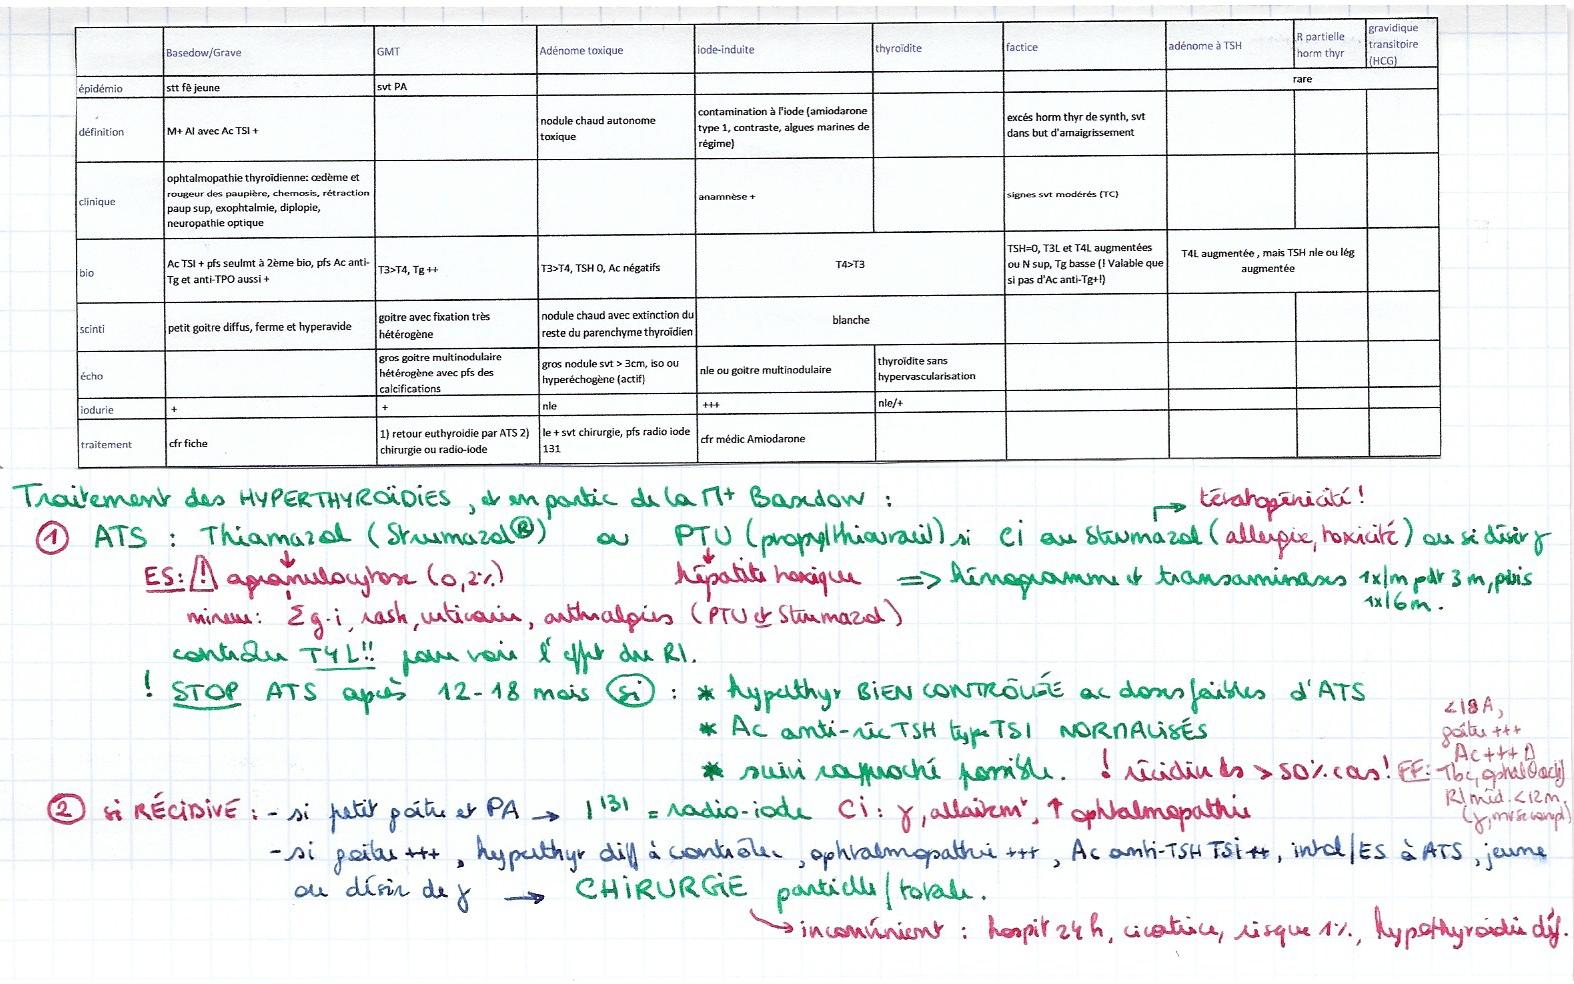 Basedow/Grave GMT Adénome toxique iode-induite thyroïdite factice adénome à TSH R partielle horm thyr gravidique transitoire (HCG)
épidémio stt fê jeune svt PA rare
définition M+ AI avec Ac TSI + nodule chaud autonome toxique contamination à l'iode (amiodarone type 1, contraste, algues marines de régime) excés horm thyr de synth, svt dans but d'amaigrissement
clinique ophtalmopathie thyroïdienne: œdème et rougeur des paupière, chemosis, rétraction paup sup, exophtalmie, diplopie, neuropathie optique anamnèse + signes svt modérés (TC)
bio Ac TSI + pfs seulmt à 2ème bio, pfs Ac anti-Tg et anti-TPO aussi + T3>T4, Tg ++ T3>T4, TSH 0, Ac négatifs T4>T3 TSH=0, T3L et T4L augmentées ou N sup, Tg basse (! Valable que si pas d'Ac anti-Tg+!) T4L augmentée , mais TSH nle ou lég augmentée
scinti petit goitre diffus, ferme et hyperavide goitre avec fixation très hétérogène nodule chaud avec extinction du reste du parenchyme thyroïdien blanche
écho gros goitre multinodulaire hétérogène avec pfs des calcifications gros nodule svt > 3cm, iso ou hyperéchogène (actif) nle ou goitre multinodulaire thyroïdite sans hypervascularisation
iodurie + + nle +++ nle/+
traitement cfr fiche 1) retour euthyroidie par ATS 2) chirurgie ou radio-iode le + svt chirurgie, pfs radio iode 131 cfr médic Amiodarone
Traitement des HYPERTHYROÏDIES, et en partic de la M+ Basedow :
→ tératogénicité !
① ATS : Thiamazol (Strumazol®) ou PTU (propylthiouracil) si CI au Strumazol (allergie, toxicité) ou si désir γ
ES: ⚠ agranulocytose (0,2%) hépatite toxique => hémogramme et transaminases 1x/m pdt 3 m, puis
1x/6m.
mineur: Σ g-i, rash, urticaire, arthralgies (PTU et Strumazol)
contrôler T4L!! pour voir l'effet du R/.
! STOP ATS après 12-18 mois si : * hyperthyr BIEN CONTRÔLÉE ac doses faibles d'ATS
* Ac anti-réc TSH type TSI NORMALISÉS
* suivi rapproché possible. ! récidive ds > 50% cas!
FF: <18A,
goitre +++
Ac +++
Tbc, ophtal
R/ méd. <12m
② si RÉCIDIVE : - si petit goitre et PA → I131 = radio-iode CI : γ, allaitemt, ↑ ophtalmopathie
- si goitre +++, hyperthyr diff à contrôler, ophtalmopathie +++, Ac anti-TSH TSI ++, intol/ES à ATS, jeune
ou désir de γ → CHIRURGIE partielle/totale.
→ inconvénient : hospit 24h, cicatrice, risque 1%, hypothyroïdie déf.